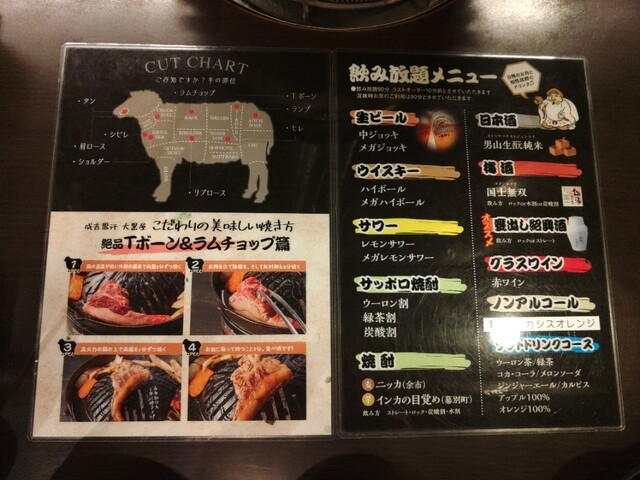 CUT CHART
ご存知ですか?羊の部位
ラムチョップ
タン
Tボーン
ランプ
ヒレ
シビレ
肩ロース
ショルダー
リブロース
RACK
成吉思汗 大黒屋 こだわりの美味しい焼き方
絶品Tボーン&ラムチョップ篇
1
2
3
4
飲み放題メニュー
●飲み放題90分 ラストオーダー10分前とさせていただきます
生ビール
中ジョッキ
メガジョッキ
ウイスキー
ハイボール
メガハイボール
サワー
レモンサワー
メガレモンサワー
サッポロ焼酎
ウーロン割
緑茶割
炭酸割
焼酎
麦 ニッカ(余市)
芋 インカの目覚め(幕別町)
飲み方 ストレート・ロック・炭酸割・水割
日本酒
男山生酛純米
梅酒
国士無双
飲み方 ロックor水割or炭酸割
オススメ
甕出し紹興酒
飲み方 ロックorストレート
グラスワイン
赤ワイン
ノンアルコール
カシスオレンジ
ソフトドリンクコース
ウーロン茶/緑茶
コカ・コーラ/メロンソーダ
ジンジャーエール/カルピス
アップル100%
オレンジ100%